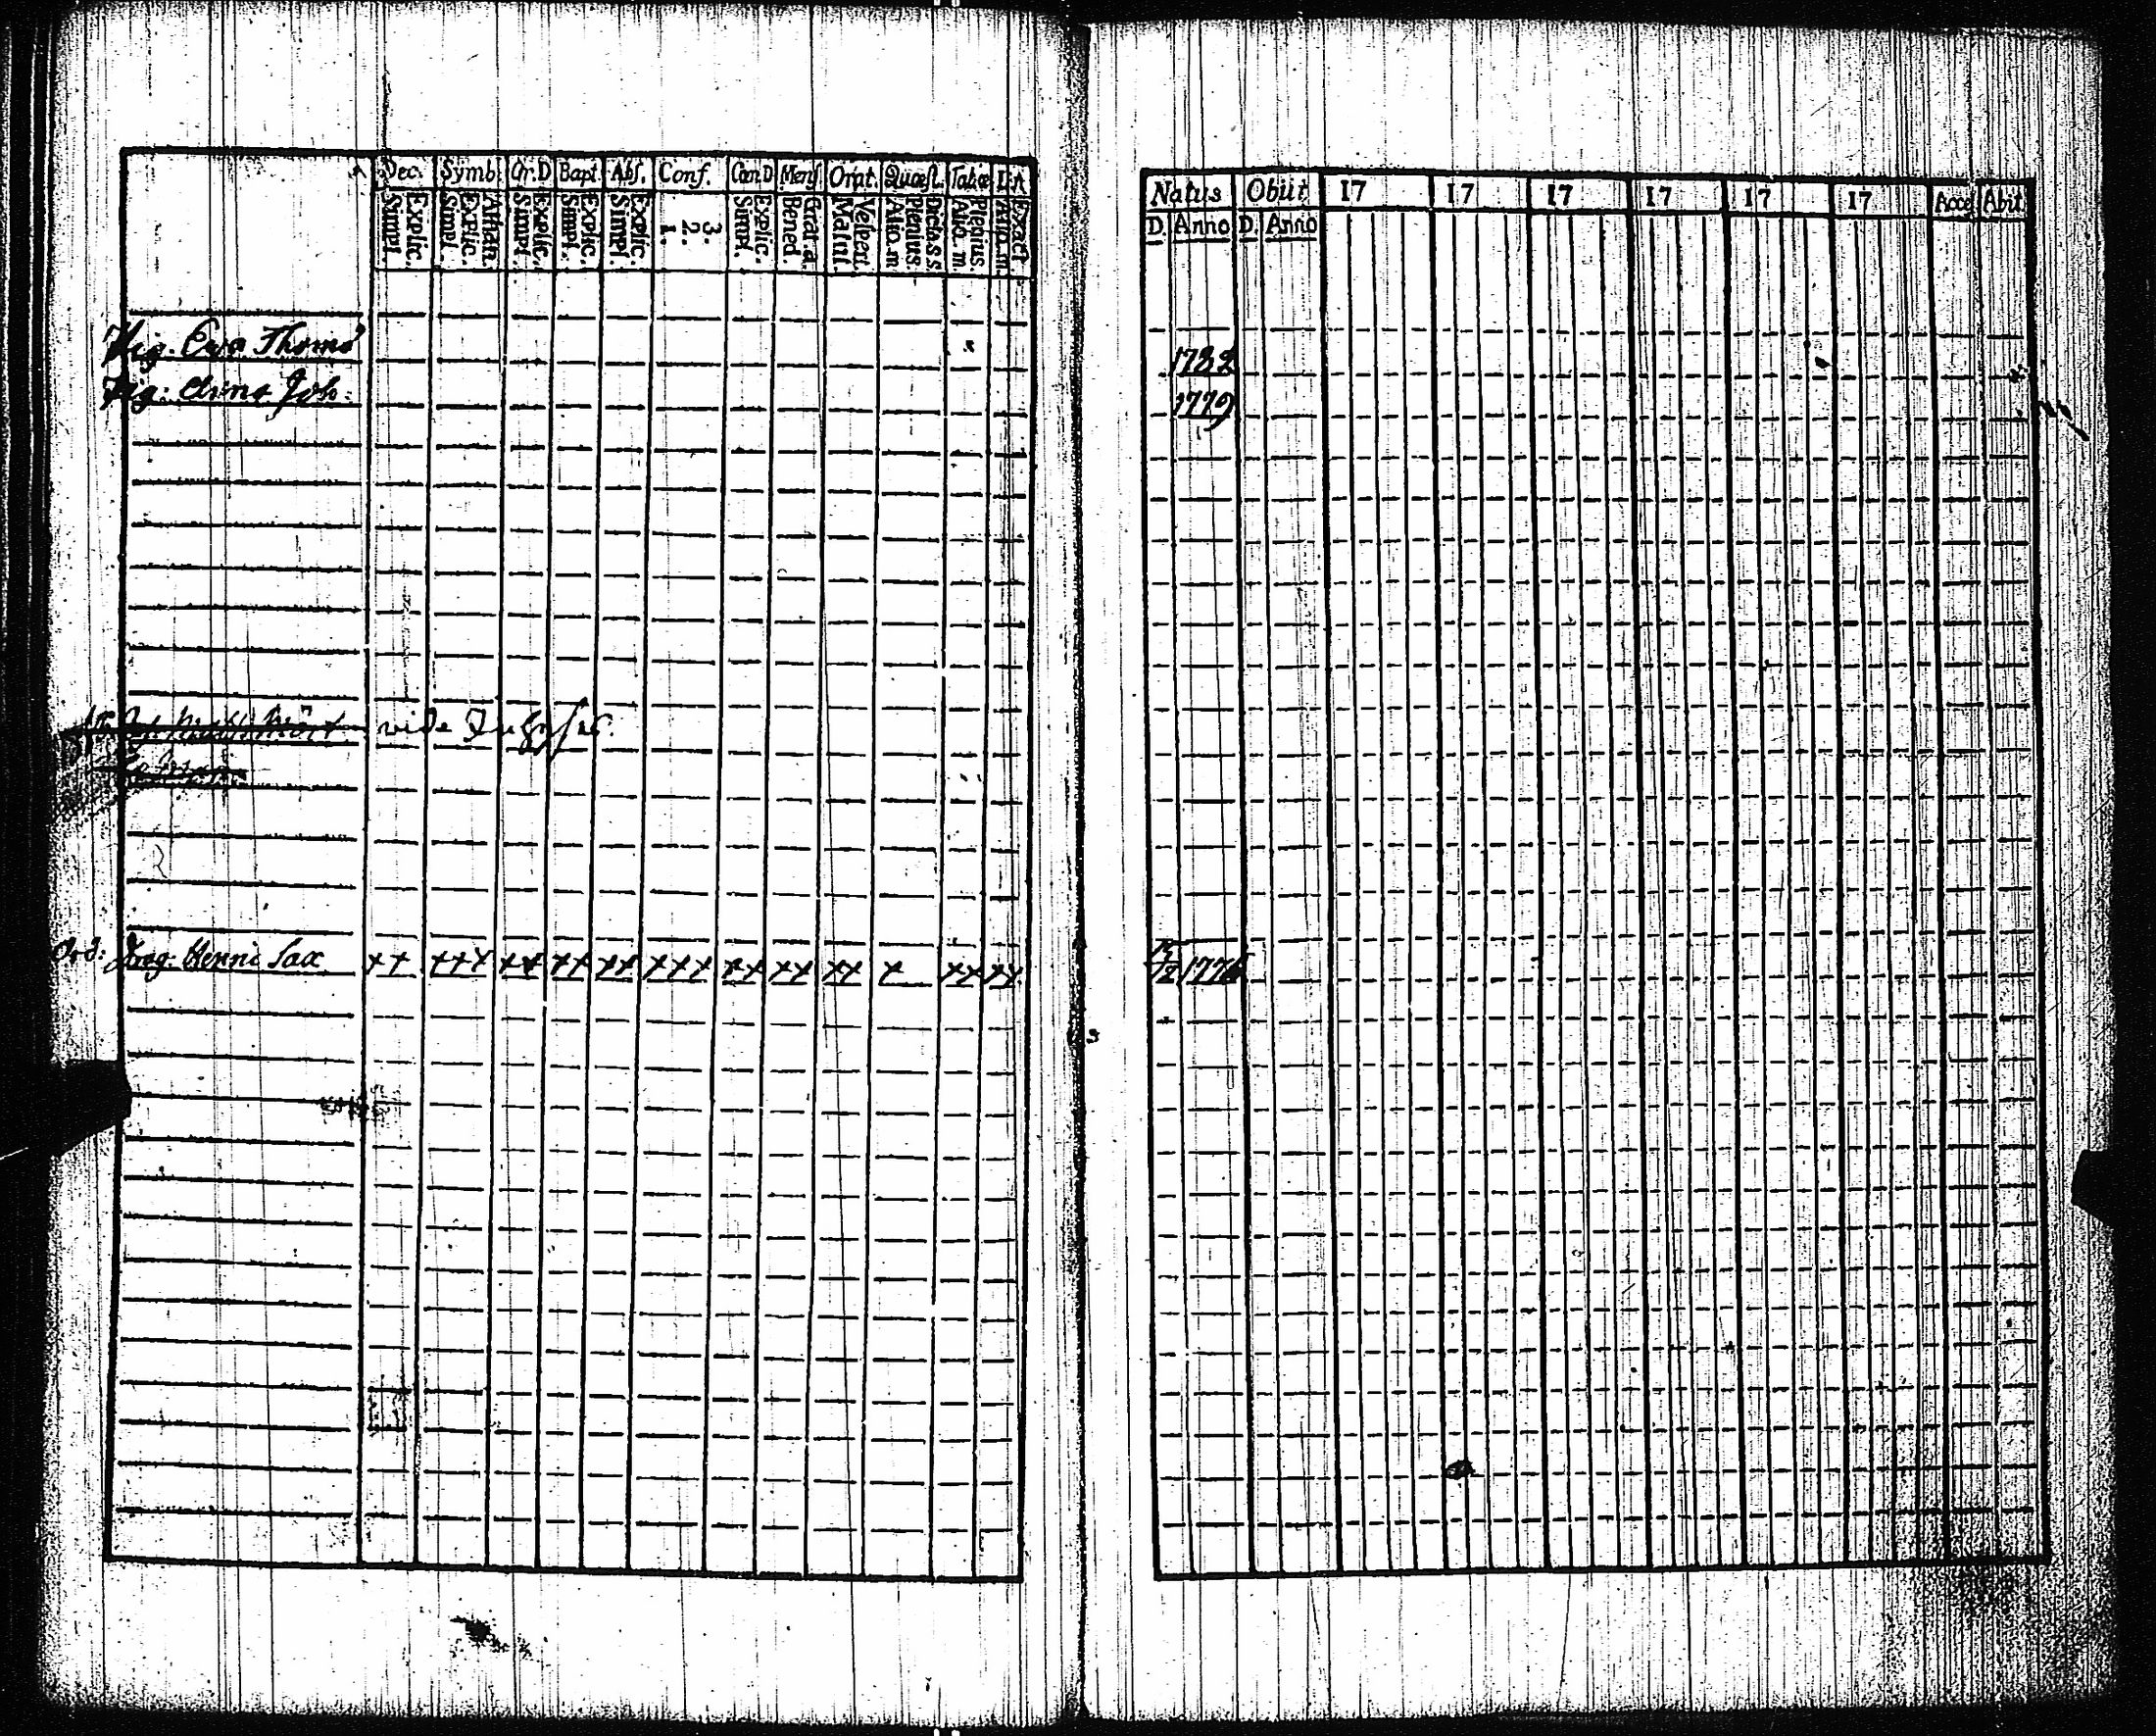 Dec. Symb. Or.D Bapt. Abs. Conf. Cœn.D Mens. Orat. Quæst. Tabœ
Simpl. Explic. Simpl. Explic. Athan. Simpl. Explic. Simpl. Explic. Simpl. Explic. 1. 2. 3. Simpl. Explic. Bened. Grat. a. Matut. Vesperi. Aliq. m. Plenius. Dicta s.s. Aliq. m. Plenius. Exact
Pig. Eva Thomæ
Pig: Anna Joh:
vide
Ord: Drag: Henric Sax ++ +++ ++ ++ ++ +++ ++ ++ ++ + ++ ++
Natus Obiit 17 17 17 17 17 17 Acce Abit
D. Anno D. Anno
1782
1779
1776